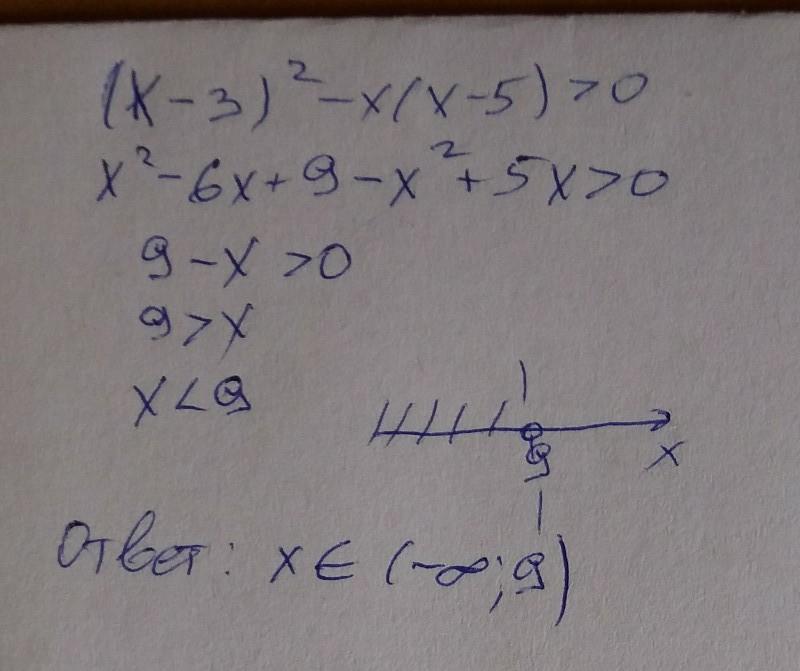 (x-3)²-x(x-5)>0
x²-6x+9-x²+5x>0
9-x>0
9>x
x<9
9 x
Ответ: x∈(-∞;9)